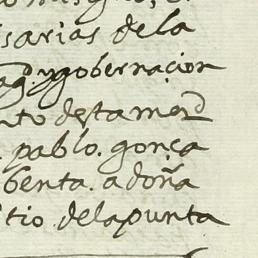 sarias dela
ygobernaçion
nto destamerd
pablo. gonça
benta. adoña
tio delapunta